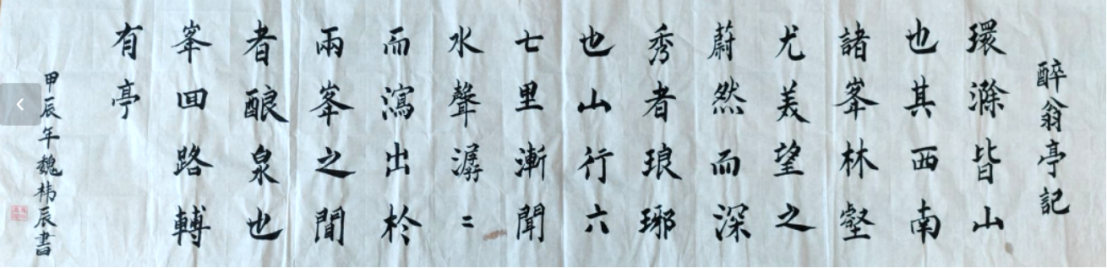 醉翁亭記
環滁皆山
也其西南
諸峯林壑
尤美望之
蔚然而深
秀者琅琊
也山行六
七里漸聞
水聲潺〻
而瀉出於
兩峯之間
者釀泉也
峯回路轉
有亭
甲辰年魏祎辰書